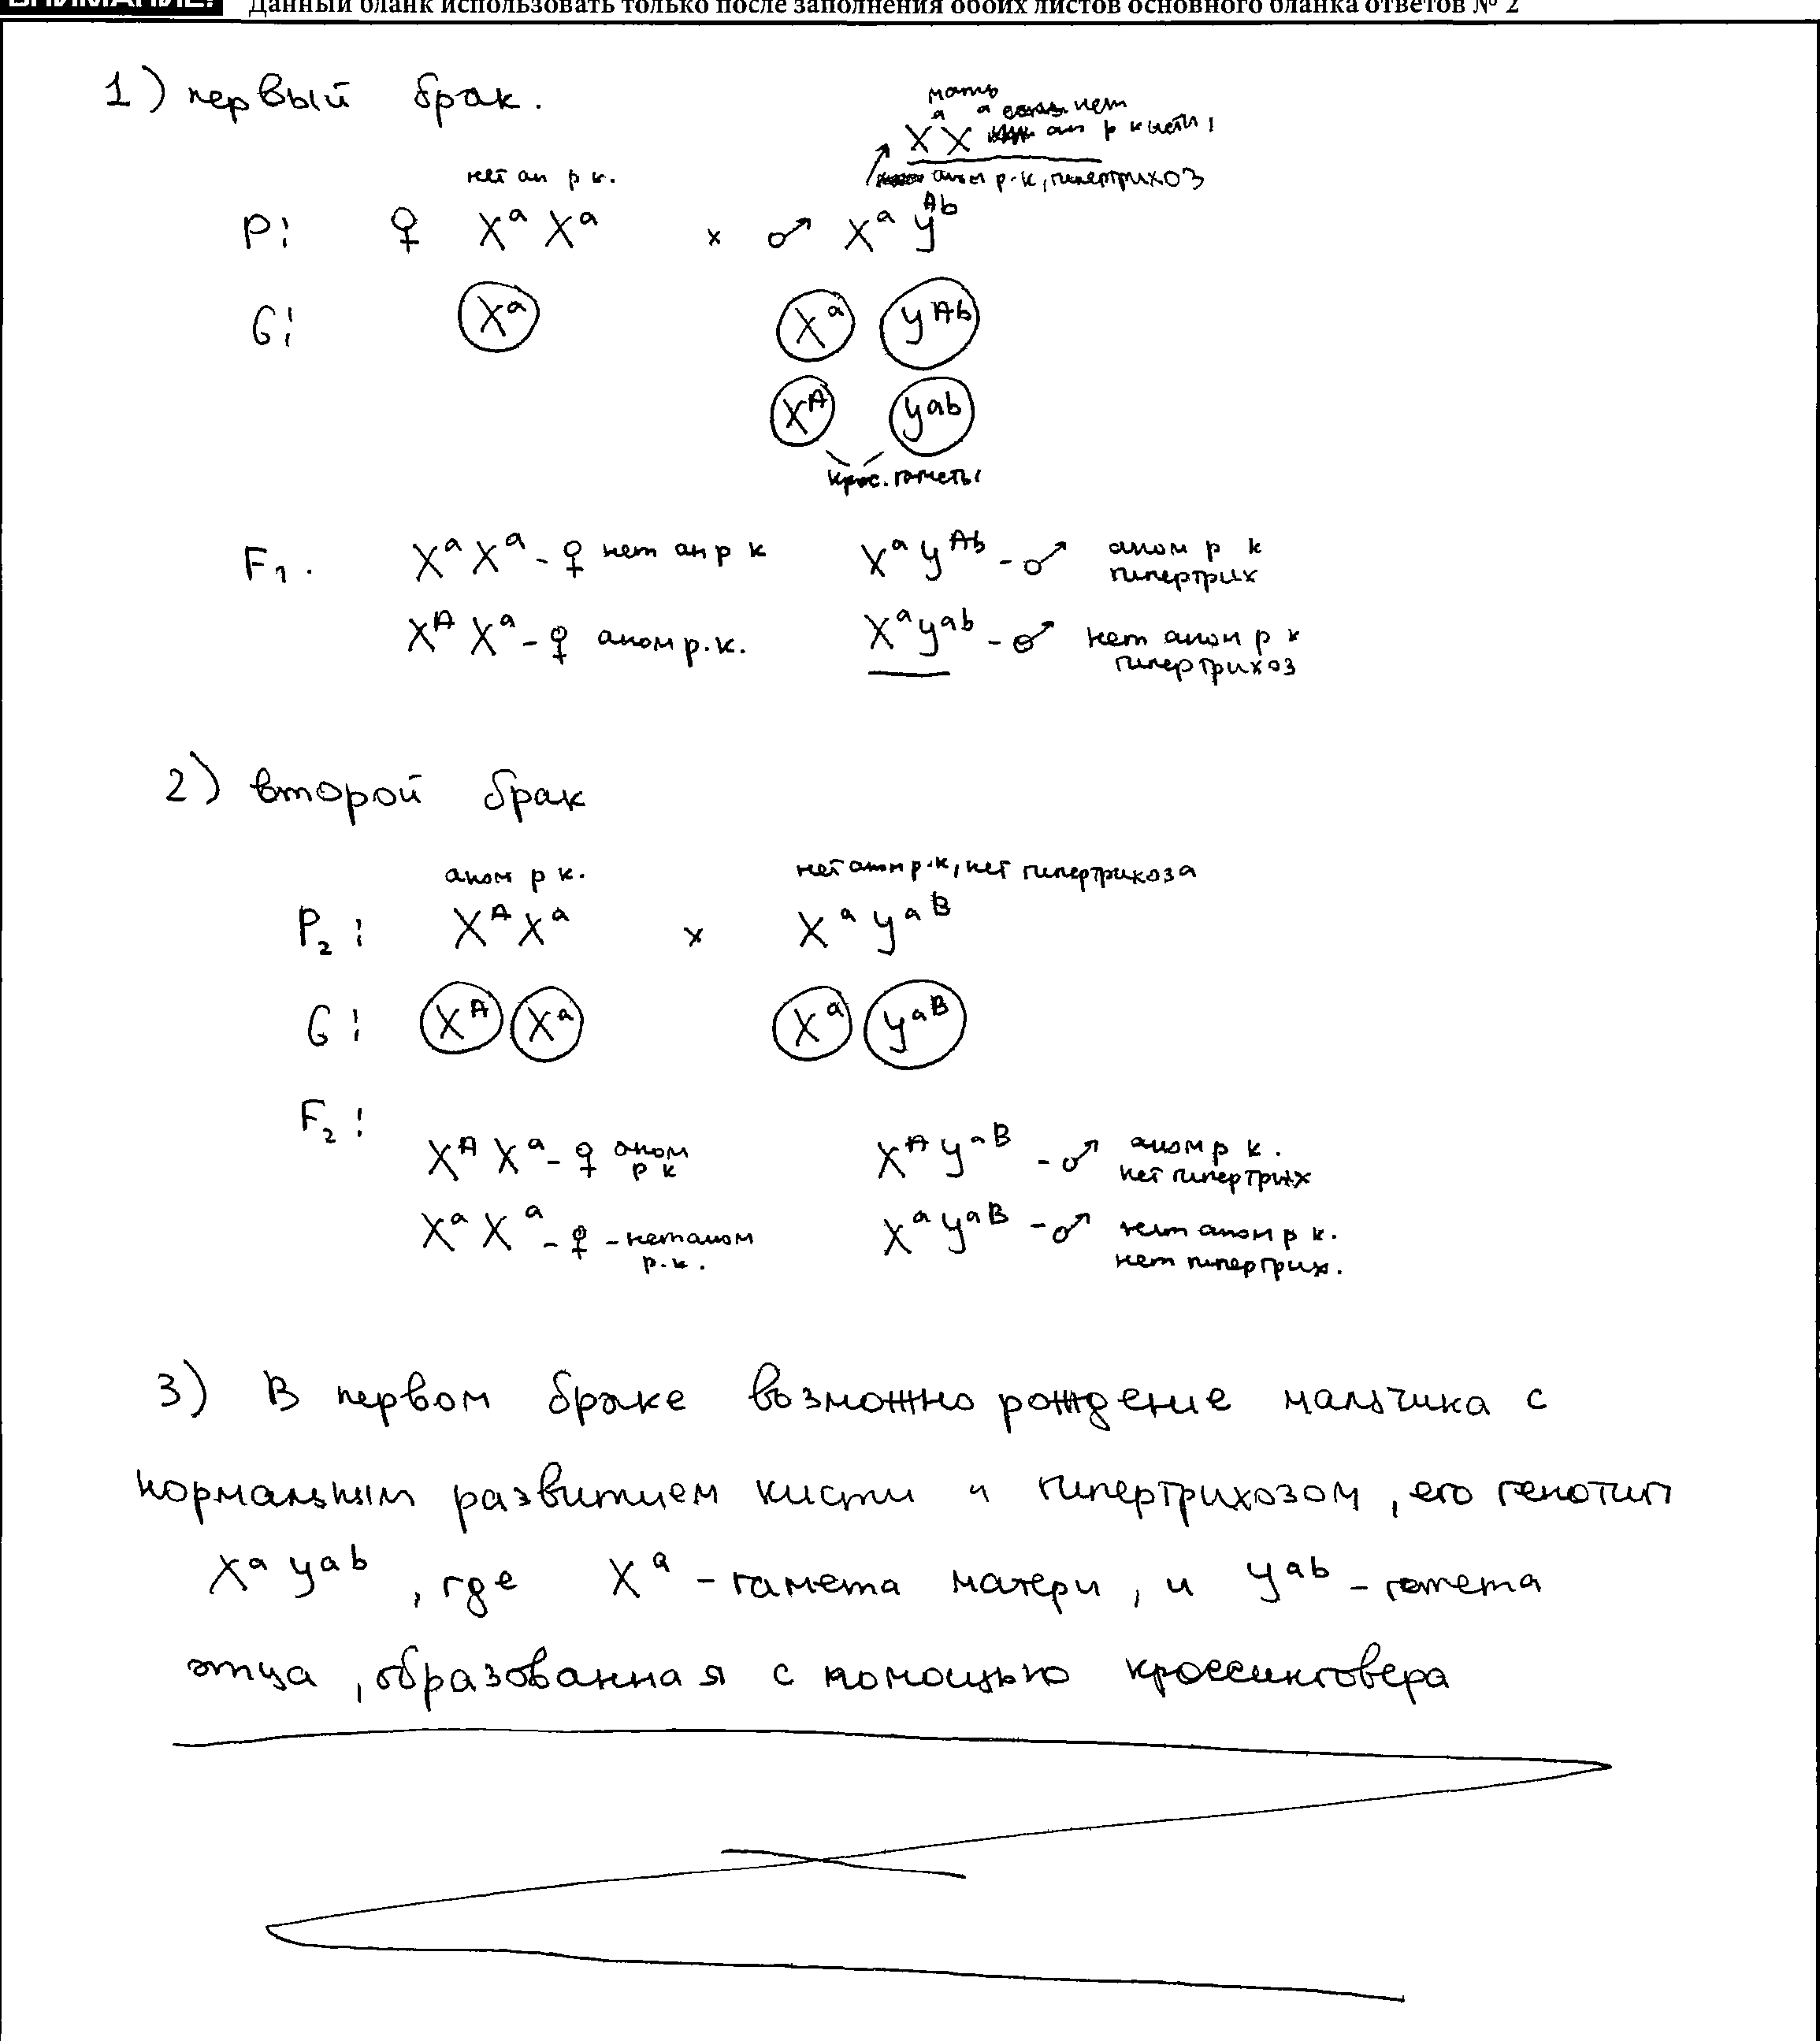 ВНИМАНИЕ! Данный бланк использовать только после заполнения обоих листов основного бланка ответов № 2
1) первый брак.
мать
X^a X^a нет ан р кисти,
нет ан р к.
аном р.к, гипертрихоз
P: ♀ X^a X^a × ♂ X^a y^Ab
G: X^a X^a y^Ab
X^A y^ab
крос. гаметы
F₁. X^a X^a - ♀ нет ан р к X^a y^Ab - ♂ аном р к
гипертрих
X^A X^a - ♀ аном р.к. X^a y^ab - ♂ нет аном р к
гипертрихоз
2) второй брак
аном р к. нет аном р.к, нет гипертрихоза
P₂: X^A X^a × X^a y^aB
G: X^A X^a X^a y^aB
F₂:
X^A X^a - ♀ аном р к X^A y^aB - ♂ аном р к.
нет гипертрих
X^a X^a - ♀ - нет аном р.к. X^a y^aB - ♂ нет аном р к.
нет гипертрих.
3) В первом браке возможно рождение мальчика с
нормальным развитием кисти и гипертрихозом, его генотип
X^a y^ab, где X^a - гамета матери, и y^ab - гамета
отца, образованная с помощью кроссинговера